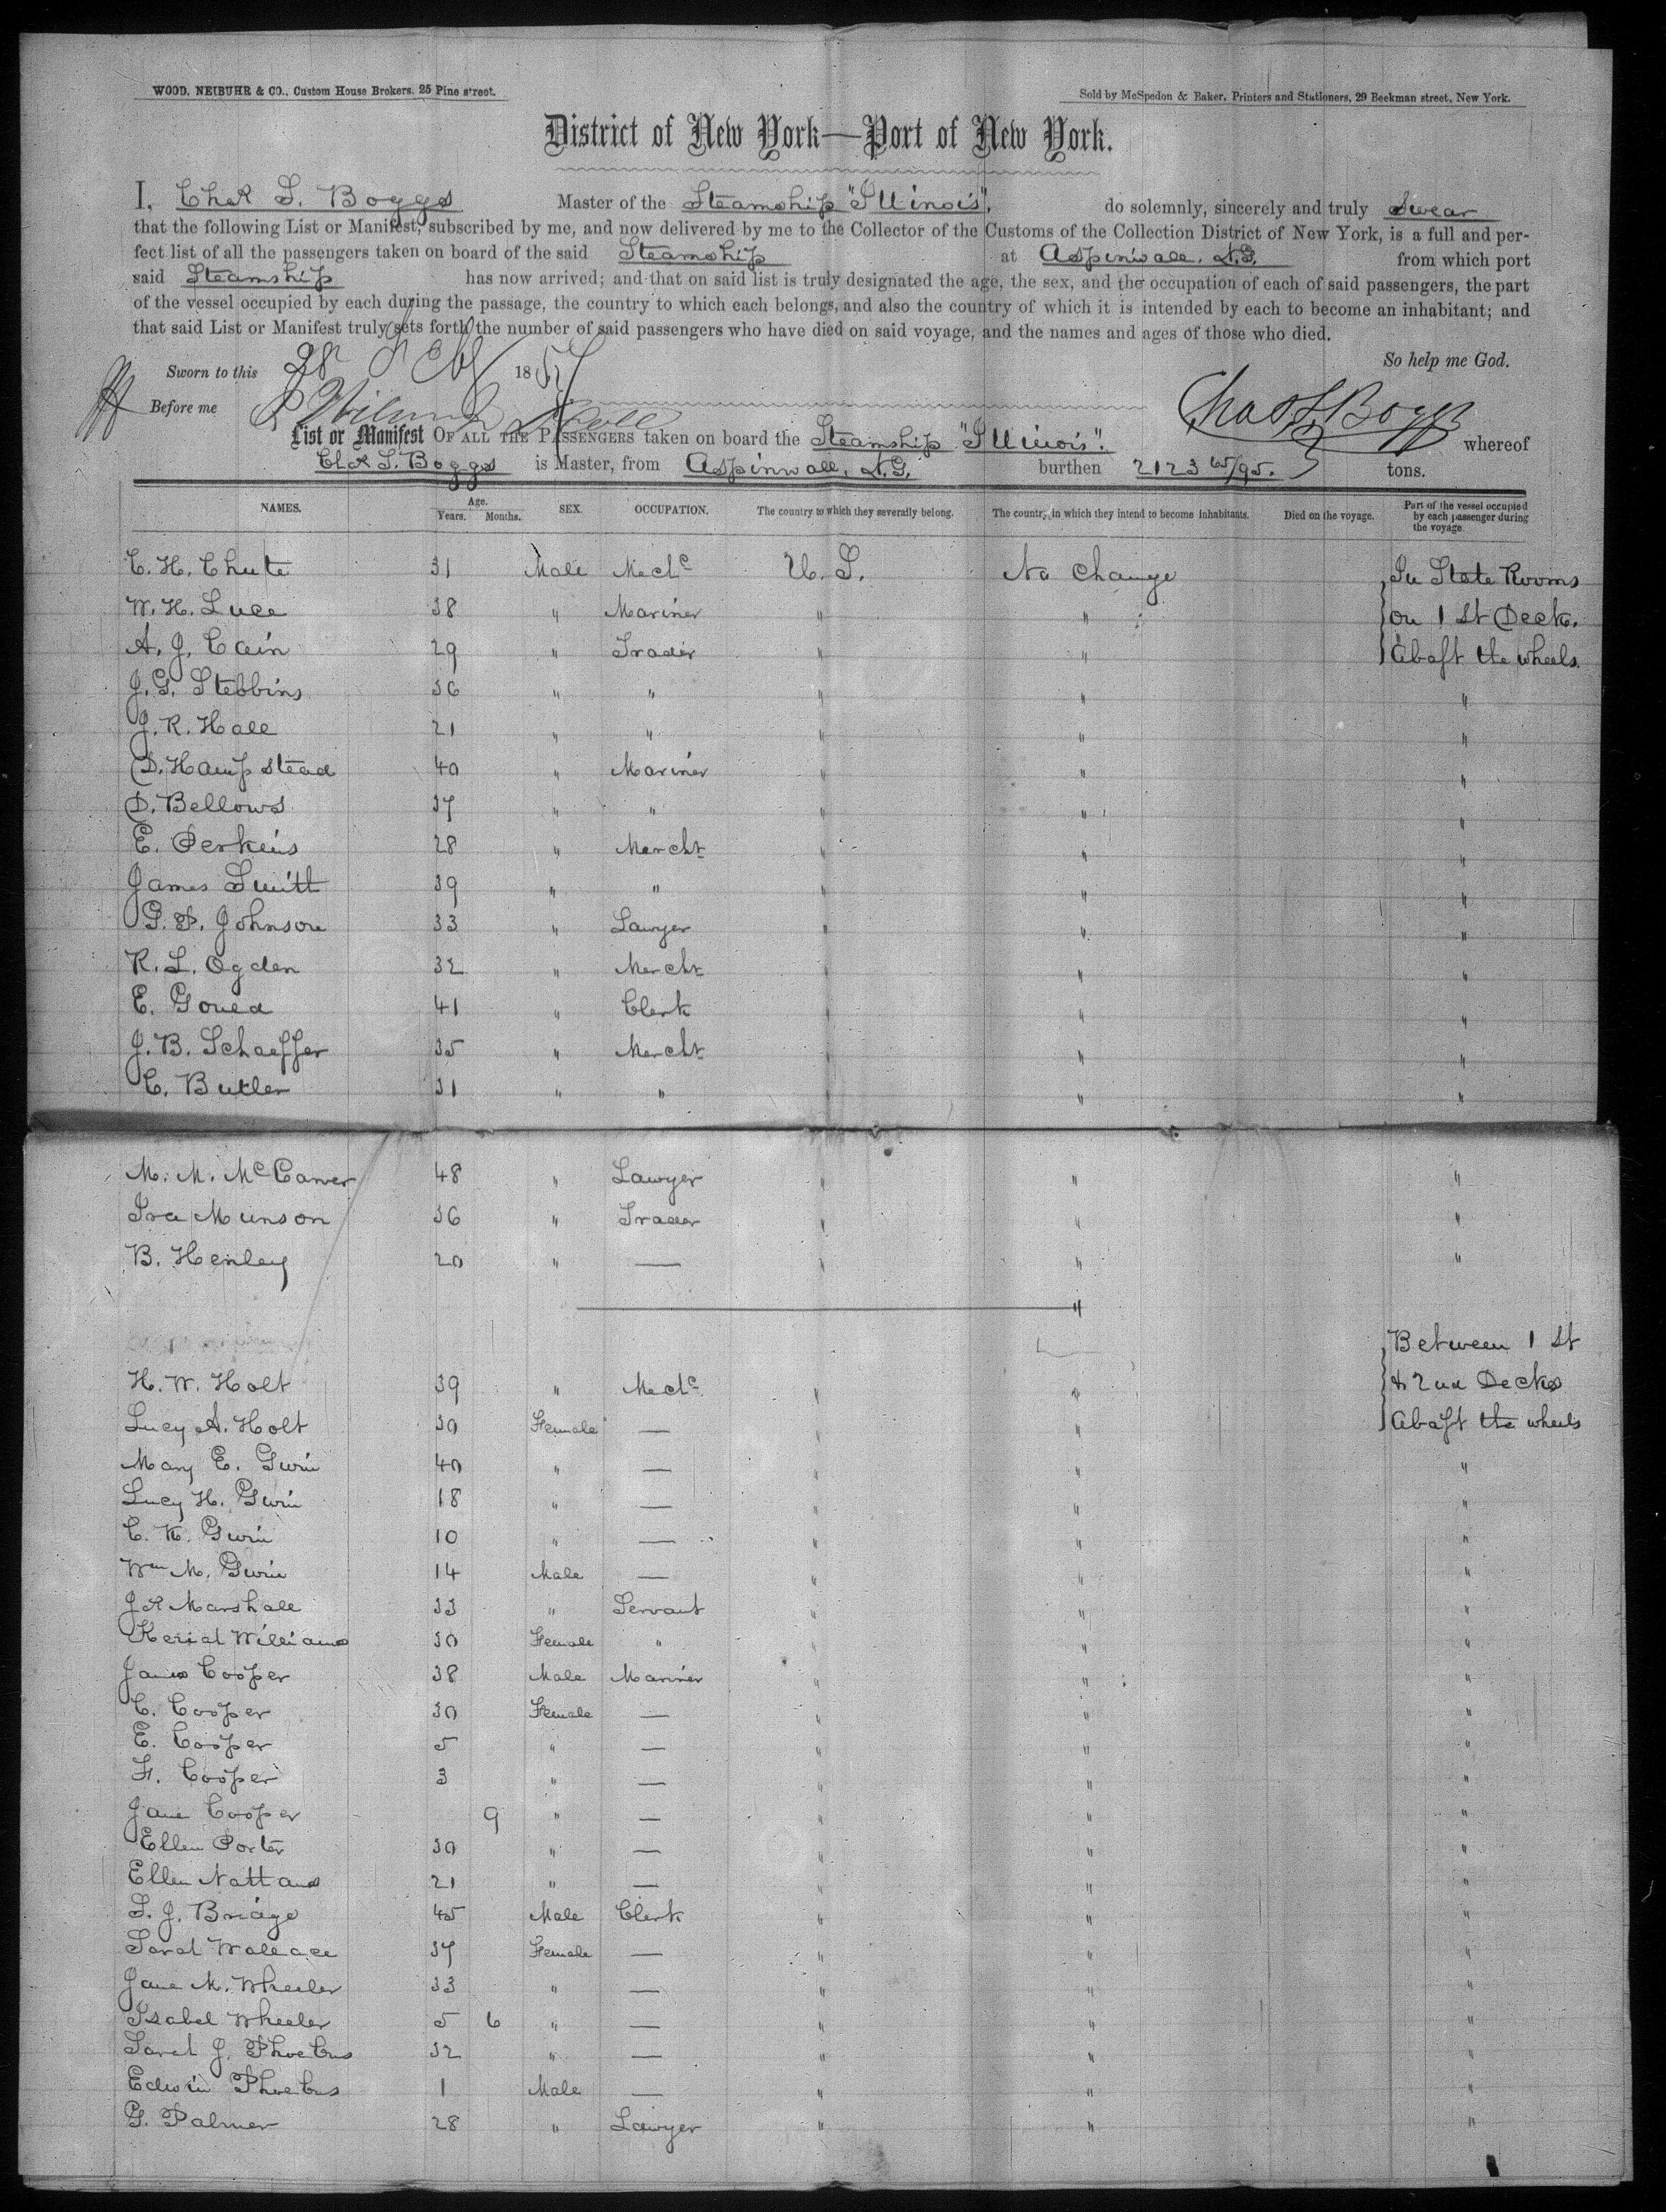 WOOD, NEIBUHR & CO., Custom House Brokers, 25 Pine street.
Sold by McSpedon & Baker, Printers and Stationers, 29 Beekman street, New York.
District of New York—Port of New York.
I, Chas S. Boggs Master of the Steamship "Illinois", do solemnly, sincerely and truly swear
that the following List or Manifest, subscribed by me, and now delivered by me to the Collector of the Customs of the Collection District of New York, is a full and per-
fect list of all the passengers taken on board of the said Steamship at Aspinwall, N.G. from which port
said Steamship has now arrived; and that on said list is truly designated the age, the sex, and the occupation of each of said passengers, the part
of the vessel occupied by each during the passage, the country to which each belongs, and also the country of which it is intended by each to become an inhabitant; and
that said List or Manifest truly sets forth the number of said passengers who have died on said voyage, and the names and ages of those who died.
So help me God.
Sworn to this 28 Feby 1857
Before me
Chas S Boggs
List or Manifest OF ALL THE PASSENGERS taken on board the Steamship "Illinois". whereof
Chas S. Boggs is Master, from Aspinwall, N.G. burthen 2123 65/95. tons.
NAMES. Age. Years. Months. SEX. OCCUPATION. The country to which they severally belong. The country in which they intend to become inhabitants. Died on the voyage. Part of the vessel occupied by each passenger during the voyage
C. H. Chute 31 Male Mechc U. S. No Change In State Rooms
W. H. Luce 38 " Mariner " " on 1 st Deck.
A. J. Cain 29 " Trader " " Abaft the wheels.
J. G. Stebbins 36 " " " " "
J. R. Hall 21 " " " " "
D. Hampstead 40 " Mariner " " "
D. Bellows 37 " " " " "
E. Perkins 28 " Mercht " " "
James Smith 39 " " " " "
G. P. Johnson 33 " Lawyer " " "
R. L. Ogden 32 " Mercht " " "
E. Gould 41 " Clerk " " "
J. B. Schaeffer 35 " Mercht " " "
C. Butler 31 " " " "
M. M. McCarver 48 " Lawyer " " "
Ira Munson 36 " Trader " " "
B. Henley 20 " — " " "
"
Between 1 st
H. W. Holt 39 " Mechc " " & 2nd Decks
Lucy A. Holt 30 Female — " " Abaft the wheels
Mary E. Gwin 40 " — " " "
Lucy H. Gwin 18 " — " " "
C. K. Gwin 10 " — " " "
Wm M. Gwin 14 Male — " " "
J R Marshall 33 " Servant " " "
Keziah Williams 30 Female " " " "
James Cooper 38 Male Mariner " " "
C. Cooper 30 Female — " " "
E. Cooper 5 " — " " "
F. Cooper 3 " — " " "
Jane Cooper 9 " — " " "
Ellen Porter 30 " — " " "
Ellen Nattans 21 " — " " "
S. J. Bridge 45 Male Clerk " " "
Sarah Wallace 37 Female — " " "
Jane M. Wheeler 33 " — " " "
Isabel Wheeler 5 6 " — " " "
Sarah J. Phoebus 32 " — " " "
Edwin Phoebus 1 Male — " " "
G. Palmer 28 " Lawyer " " "